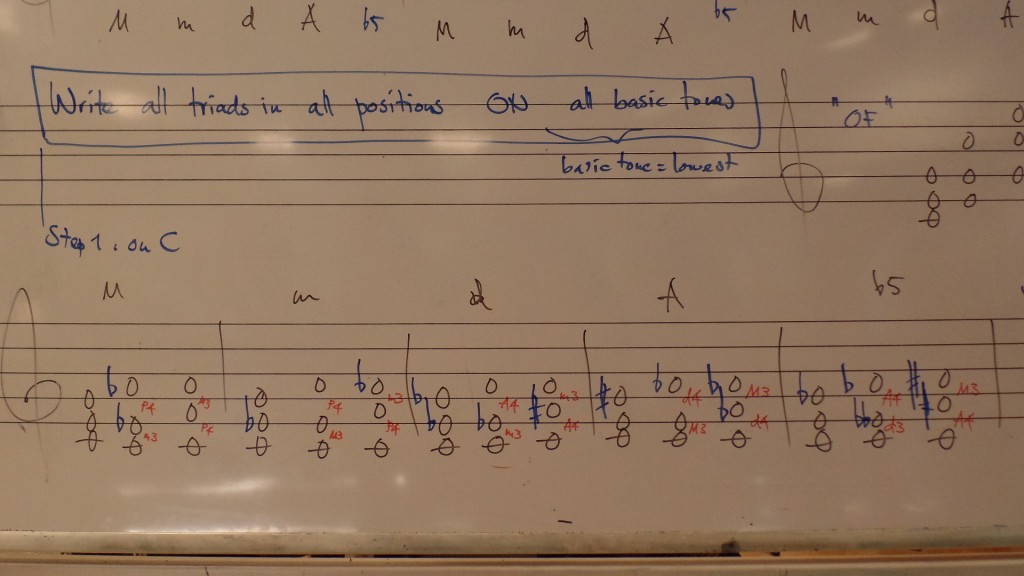 M m d A b5 M m d A b5 M m d A
Write all triads in all positions ON all basic tones
"OF"
basic tone = lowest
Step 1. on C
M m d A b5
b b b b b b b b b #
P4 M3 P4 m3 A4 m3 d4 M3 A4 M3
b b b b # b bb #
m3 P4 M3 P4 m3 A4 M3 d4 d3 A4